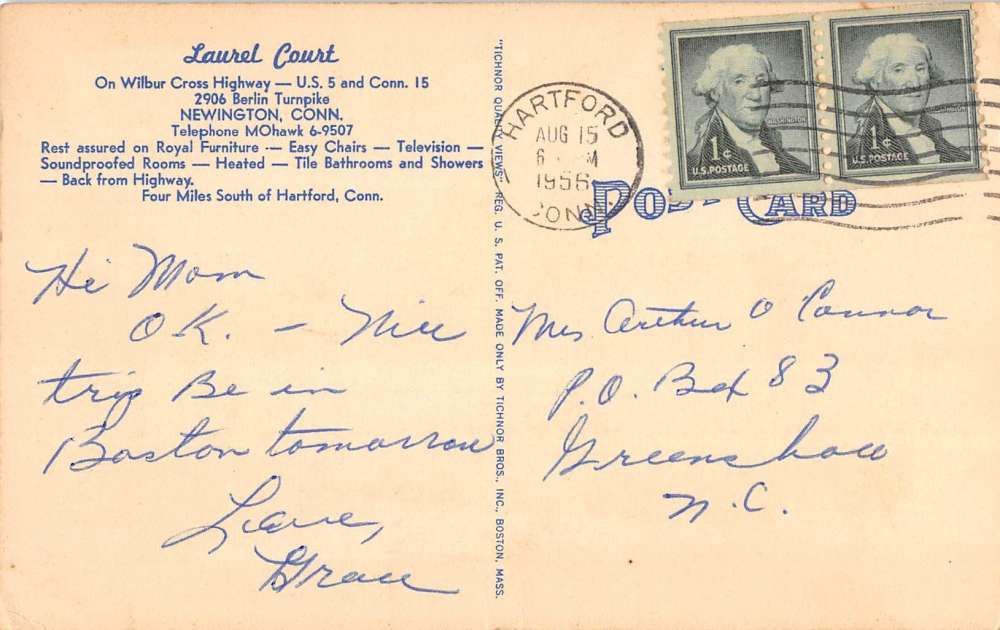 Laurel Court
On Wilbur Cross Highway — U.S. 5 and Conn. 15
2906 Berlin Turnpike
NEWINGTON, CONN.
Telephone MOhawk 6-9507
Rest assured on Royal Furniture — Easy Chairs — Television —
Soundproofed Rooms — Heated — Tile Bathrooms and Showers
— Back from Highway.
Four Miles South of Hartford, Conn.
Hi Mom
O.K. — Nice
trip Be in
Boston tomorrow
Love,
Grace
"TICHNOR QUALITY VIEWS" REG. U. S. PAT. OFF. MADE ONLY BY TICHNOR BROS., INC., BOSTON, MASS.
HARTFORD
AUG 15
6 M
1956
CONN.
WASHINGTON
1¢
U.S. POSTAGE
WASHINGTON
1¢
U.S. POSTAGE
POST CARD
Mrs Arthur O Connor
P.O. Box 83
Greensboro
N.C.